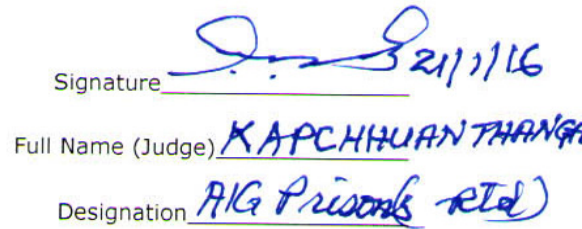 Signature 21/1/16
Full Name (Judge) KAPCHHUANTHANGA
Designation AIG Prisons Rtd)